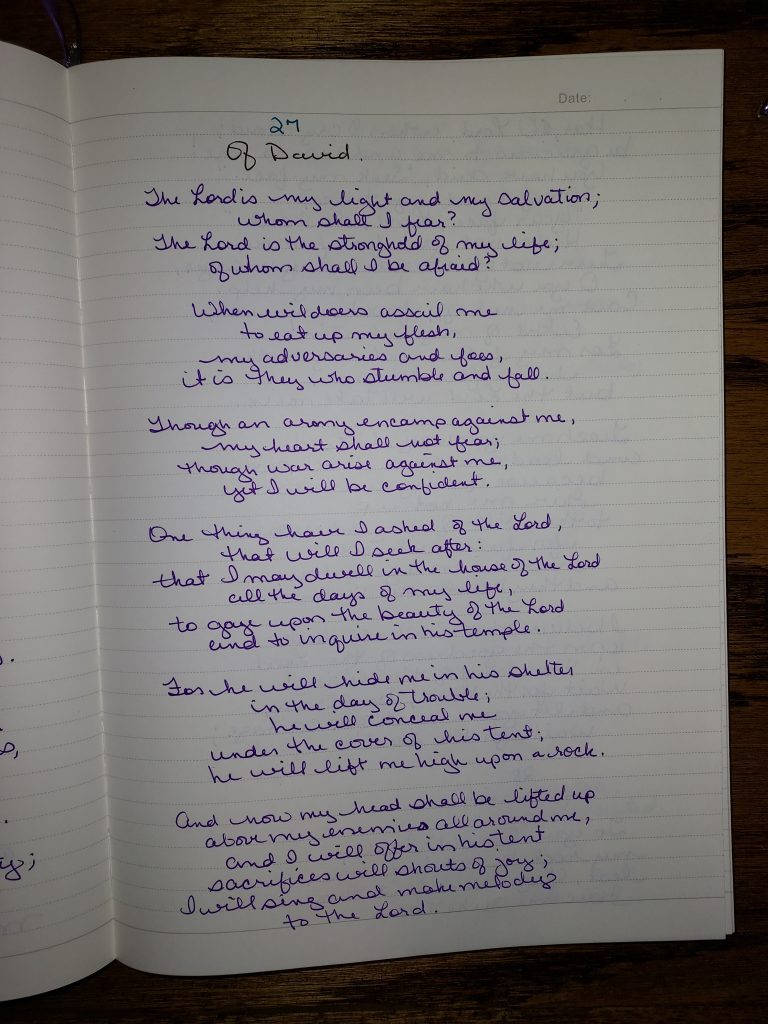 Date:
27
Of David.
The Lord is my light and my salvation;
whom shall I fear?
The Lord is the stronghold of my life;
of whom shall I be afraid?
When evildoers assail me
to eat up my flesh,
my adversaries and foes,
it is they who stumble and fall.
Though an army encamp against me,
my heart shall not fear;
though war arise against me,
yet I will be confident.
One thing have I asked of the Lord,
that will I seek after:
that I may dwell in the house of the Lord
all the days of my life,
to gaze upon the beauty of the Lord
and to inquire in his temple.
For he will hide me in his shelter
in the day of trouble;
he will conceal me
under the cover of his tent;
he will lift me high upon a rock.
And now my head shall be lifted up
above my enemies all around me,
and I will offer in his tent
sacrifices will shouts of joy;
I will sing and make melody
to the Lord.